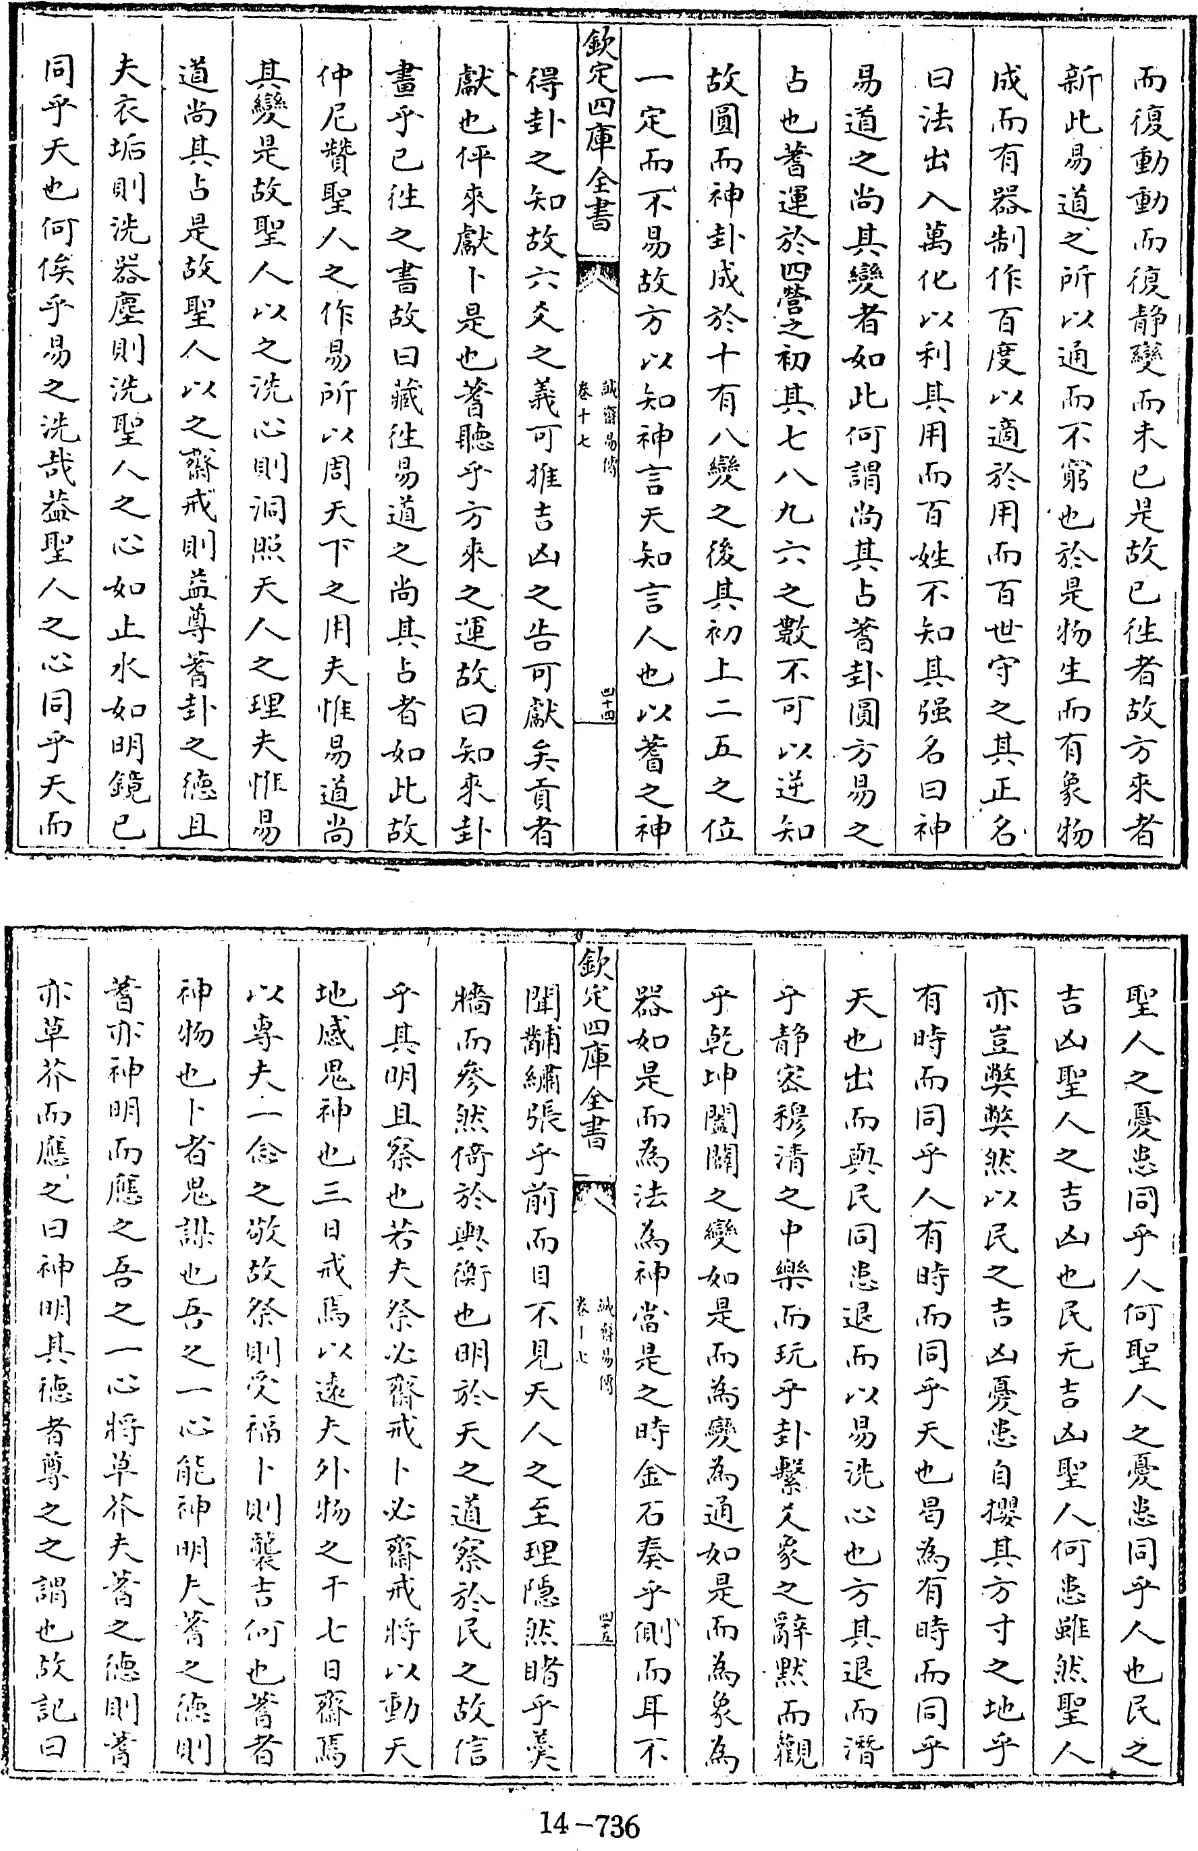 而復動動而復静變而未已是故已徃者故方來者
新此易道之所以通而不窮也於是物生而有象物
成而有器制作百度以適於用而百世守之其正名
曰法出入萬化以利其用而百姓不知其强名曰神
易道之尚其變者如此何謂尚其占蓍卦圓方易之
占也蓍運於四營之初其七八九六之數不可以逆知
故圓而神卦成於十有八變之後其初上二五之位
一定而不易故方以知神言天知言人也以蓍之神
欽定四庫全書
誠齋易傳
卷十七
四十四
得卦之知故六爻之義可推吉凶之告可獻矣貢者
獻也伻來獻卜是也蓍聽乎方來之運故曰知來卦
畫乎已徃之書故曰藏徃易道之尚其占者如此故
仲尼贊聖人之作易所以周天下之用夫惟易道尚
其變是故聖人以之洗心則洞照天人之理夫惟易
道尚其占是故聖人以之齋戒則益尊蓍卦之德且
夫衣垢則洗器塵則洗聖人之心如止水如明鏡已
同乎天也何俟乎易之洗哉葢聖人之心同乎天而
聖人之憂患同乎人何聖人之憂患同乎人也民之
吉凶聖人之吉凶也民无吉凶聖人何患雖然聖人
亦豈弊弊然以民之吉凶憂患自攖其方寸之地乎
有時而同乎人有時而同乎天也曷為有時而同乎
天也出而與民同患退而以易洗心也方其退而潛
乎静宻穆清之中樂而玩乎卦繫爻象之辭黙而觀
乎乾坤闔闢之變如是而為變為通如是而為象為
器如是而為法為神當是之時金石奏乎側而耳不
欽定四庫全書
誠齋易傳
卷十七
四十五
聞黼繡張乎前而目不見天人之至理隠然睹乎羮
牆而參然倚於輿衡也明於天之道察於民之故信
乎其明且察也若夫祭必齋戒卜必齋戒將以動天
地感鬼神也三日戒焉以遠夫外物之干七日齋焉
以專夫一念之敬故祭則受福卜則襲吉何也蓍者
神物也卜者鬼謀也吾之一心能神明夫蓍之德則
蓍亦神明而應之吾之一心將草芥夫蓍之德則蓍
亦草芥而應之曰神明其德者尊之之謂也故記曰
14-736